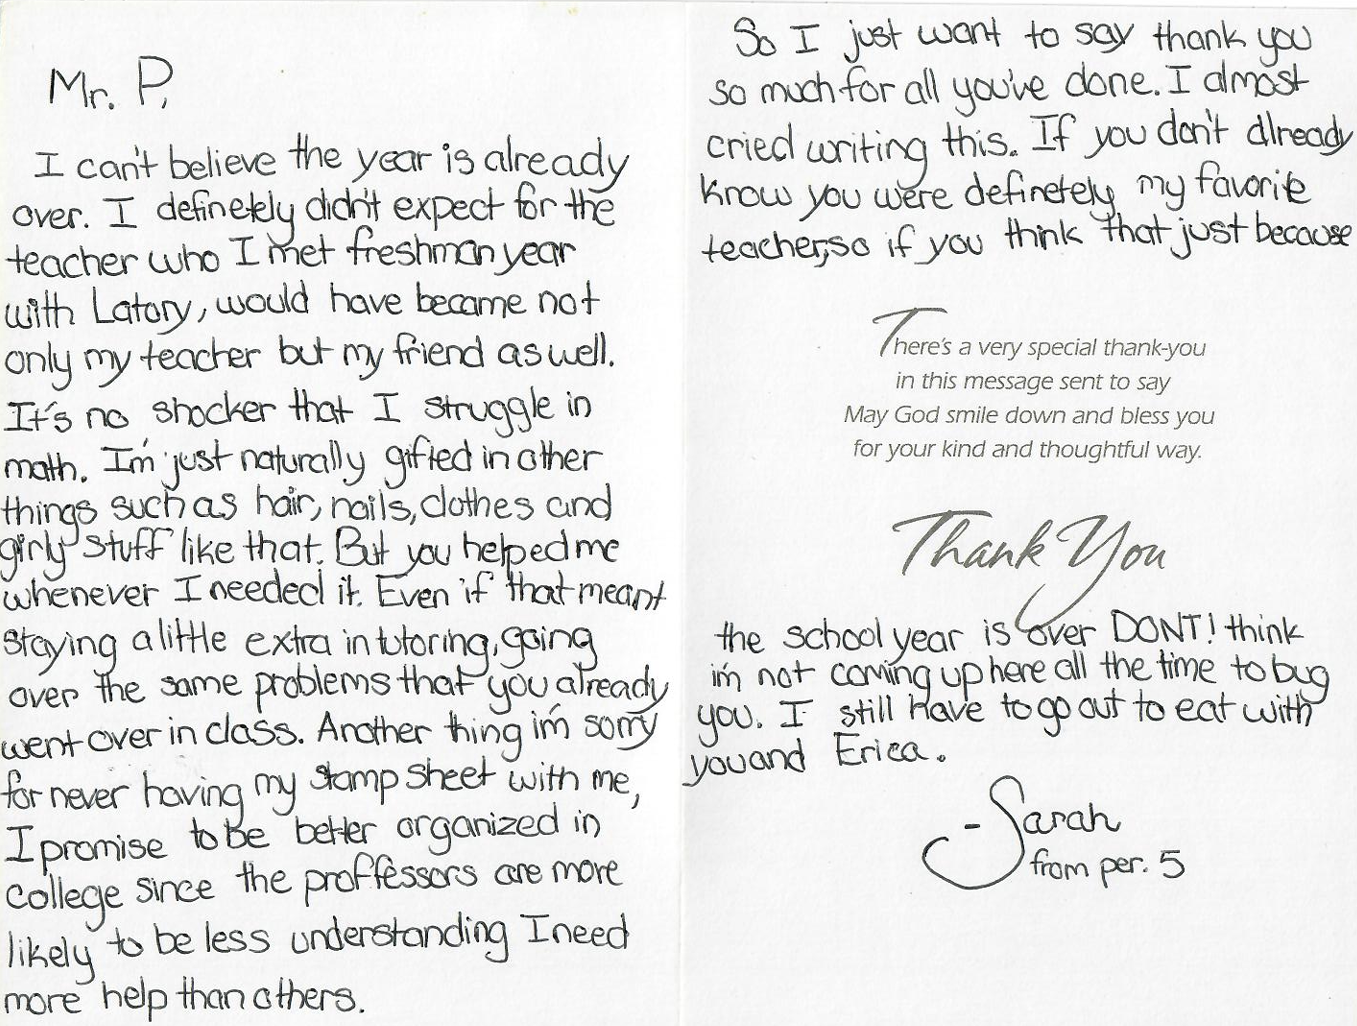 Mr. P,
I can't believe the year is already
over. I definetely didn't expect for the
teacher who I met freshman year
with Latory, would have became not
only my teacher but my friend as well.
It's no shocker that I struggle in
math. I'm just naturally gifted in other
things such as hair, nails, clothes and
girly stuff like that. But you helped me
whenever I needed it. Even if that meant
staying a little extra in tutoring, going
over the same problems that you already
went over in class. Another thing i'm sorry
for never having my stamp sheet with me,
I promise to be better organized in
college since the proffessors are more
likely to be less understanding I need
more help than others.
So I just want to say thank you
so much for all you've done. I almost
cried writing this. If you don't already
know you were definetely my favorite
teacher, so if you think that just because
There's a very special thank-you
in this message sent to say
May God smile down and bless you
for your kind and thoughtful way.
Thank You
the school year is over DONT! think
i'm not coming up here all the time to bug
you. I still have to go out to eat with
you and Erica.
-Sarah
from per. 5